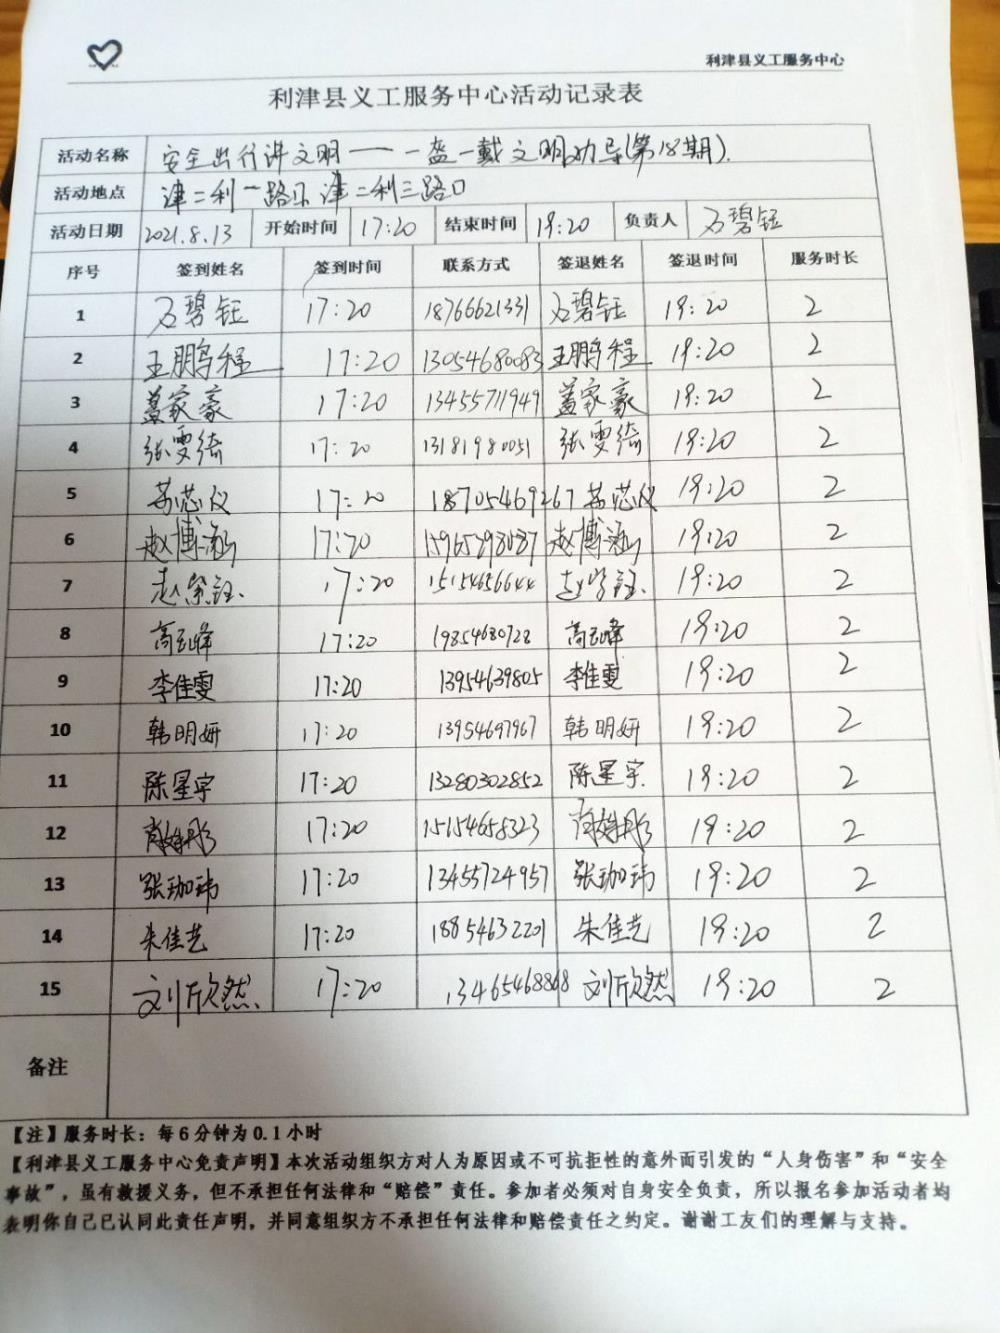 利津县义工服务中心
利津县义工服务中心活动记录表
活动名称 安全出行讲文明——一盔一戴文明劝导(第18期).
活动地点 津二利一路口 津二利三路口
活动日期 2021.8.13 开始时间 17:20 结束时间 19:20 负责人 石碧钰
序号 签到姓名 签到时间 联系方式 签退姓名 签退时间 服务时长
1 石碧钰 17:20 18766621331 石碧钰 19:20 2
2 王鹏程 17:20 13054680083 王鹏程 19:20 2
3 盖家豪 17:20 13455711949 盖家豪 19:20 2
4 张雯绮 17:20 13181980051 张雯绮 19:20 2
5 苏芯仪 17:20 18705469267 苏芯仪 19:20 2
6 赵博涵 17:20 赵博涵 19:20 2
7 17:20 19:20 2
8 高云峰 17:20 19854680728 高云峰 19:20 2
9 李佳雯 17:20 13954639805 李佳雯 19:20 2
10 韩明妍 17:20 13954697967 韩明妍 19:20 2
11 陈星宇 17:20 13280302852 陈星宇 19:20 2
12 17:20 15154658323 19:20 2
13 张珈玮 17:20 13455724957 张珈玮 19:20 2
14 朱佳艺 17:20 18854632201 朱佳艺 19:20 2
15 刘欣然 17:20 13465468868 刘欣然 19:20 2
备注
【注】服务时长：每6分钟为0.1小时
【利津县义工服务中心免责声明】本次活动组织方对人为原因或不可抗拒性的意外而引发的“人身伤害”和“安全
事故”，虽有救援义务，但不承担任何法律和“赔偿”责任。参加者必须对自身安全负责，所以报名参加活动者均
表明你自己已认同此责任声明，并同意组织方不承担任何法律和赔偿责任之约定。谢谢工友们的理解与支持。